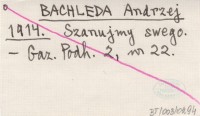 BACHLEDA Andrzej
1914. Szanujmy swego.
– Gaz. Podh. 2, nr 22.